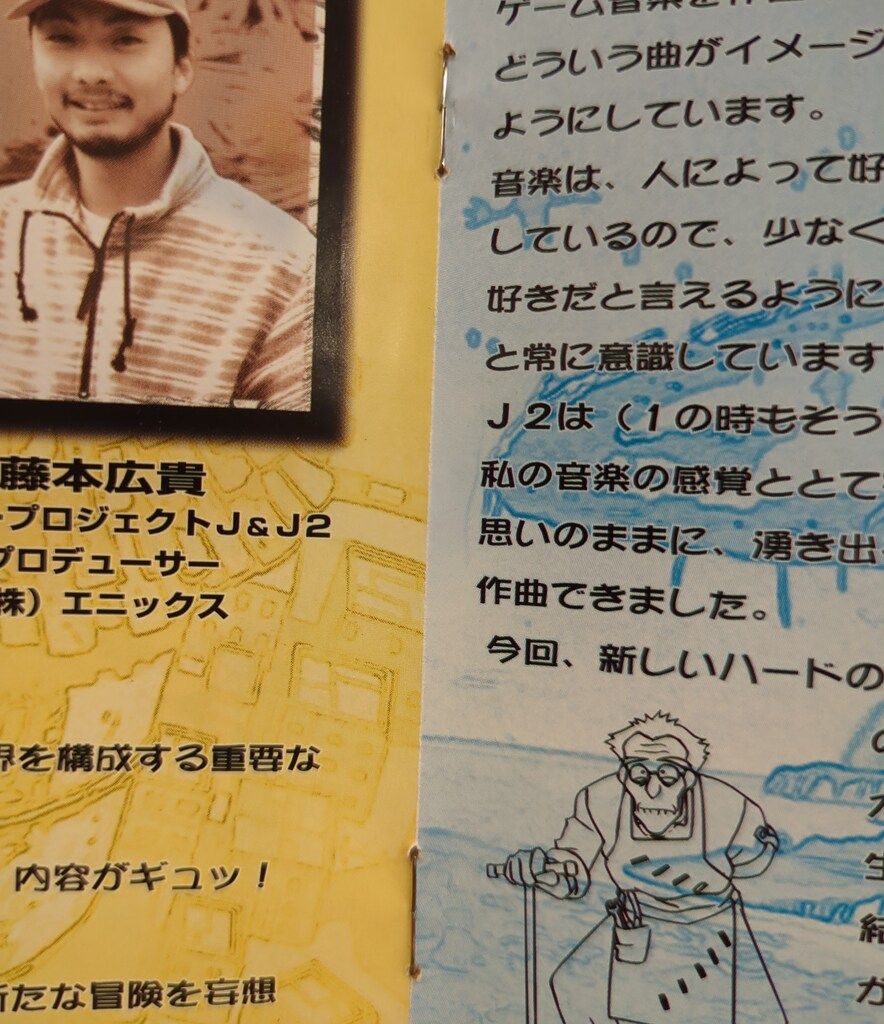 藤本広貴
プロジェクトJ&J2
プロデューサー
株）エニックス
界を構成する重要な
内容がギュッ！
新たな冒険を妄想
ゲーム音楽を作
どういう曲がイメージ
ようにしています。
音楽は、人によって好
しているので、少なく
好きだと言えるように
と常に意識しています
J2は（1の時もそう
私の音楽の感覚ととて
思いのままに、湧き出
作曲できました。
今回、新しいハードの
の
生
結
が